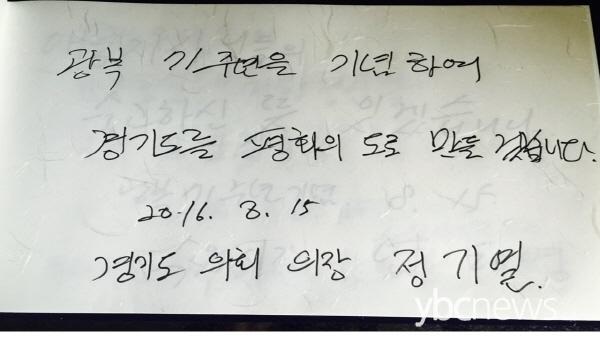 광복 71주년을 기념하여
경기도를 평화의 도로 만들겠습니다.
2016. 8. 15
경기도 의회 의장 정기열.
ybcnews